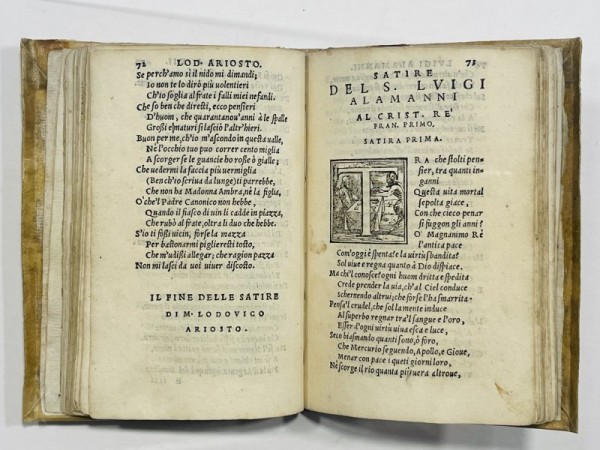 72 LOD. ARIOSTO.
Se perch'amo sì il nido mi dimandi;
Io non te lo dirò più uolentieri
Ch'io soglia al frate i falli miei nefandi.
Che so ben che diresti, ecco pensieri
D'huom, che quarantanou'anni à le spalle
Grossi e maturi si lasciò l'altr'hieri.
Buon per me, ch'io m'ascondo in questa ualle,
Nè l'occhio tuo puo correr cento miglia
A scorger se le guancie ho rosse ò gialle;
Che uedermi la faccia più uermiglia
(Ben ch'io scriua da lunge) ti parrebbe,
Che non ha Madonna Ambra, nè la figlia,
O' che'l Padre Canonico non hebbe,
Quando il fiasco di uin li cadde in piazza,
Che rubò al frate, oltra li duo che hebbe.
S'io ti fossi uicin, forse la mazza
Per bastonarmi piglieresti tosto,
Che m'udissi allegar; che ragion pazza
Non mi lasci da uoi uiuer discosto.
IL FINE DELLE SATIRE
DI M. LODOVICO
ARIOSTO.
73
SATIRE
DEL S. LVIGI
ALAMANNI
AL CRIST. RE'
FRAN. PRIMO.
SATIRA PRIMA.
TRA che stolti pen-
sier, tra quanti in-
ganni
Questa uita mortal
sepolta giace,
Con che cieco penar
si fuggon gli anni!
O' Magnanimo Rè
l'antica pace
Com'oggi è spenta! e la uirtù sbandita!
Sol uiue e regna quanto à Dio dispiace.
Ma chi'l conosce! ogni huom dritta e spedita
Crede prender la uia, ch'al Ciel conduce
Schernendo altrui; che forse l'ha smarrita.
Pensa'l crudel, che sol la mente induce
Al superbo regnar tra'l sangue e l'oro,
Esser d'ogni uirtù uiua esca e luce,
Seco biasmando quanti sono, ò foro,
Che Mercurio seguendo, Apollo, e Gioue,
Menar con pace i queti giorni loro,
Nè scorge il rio quanta più uera altroue,